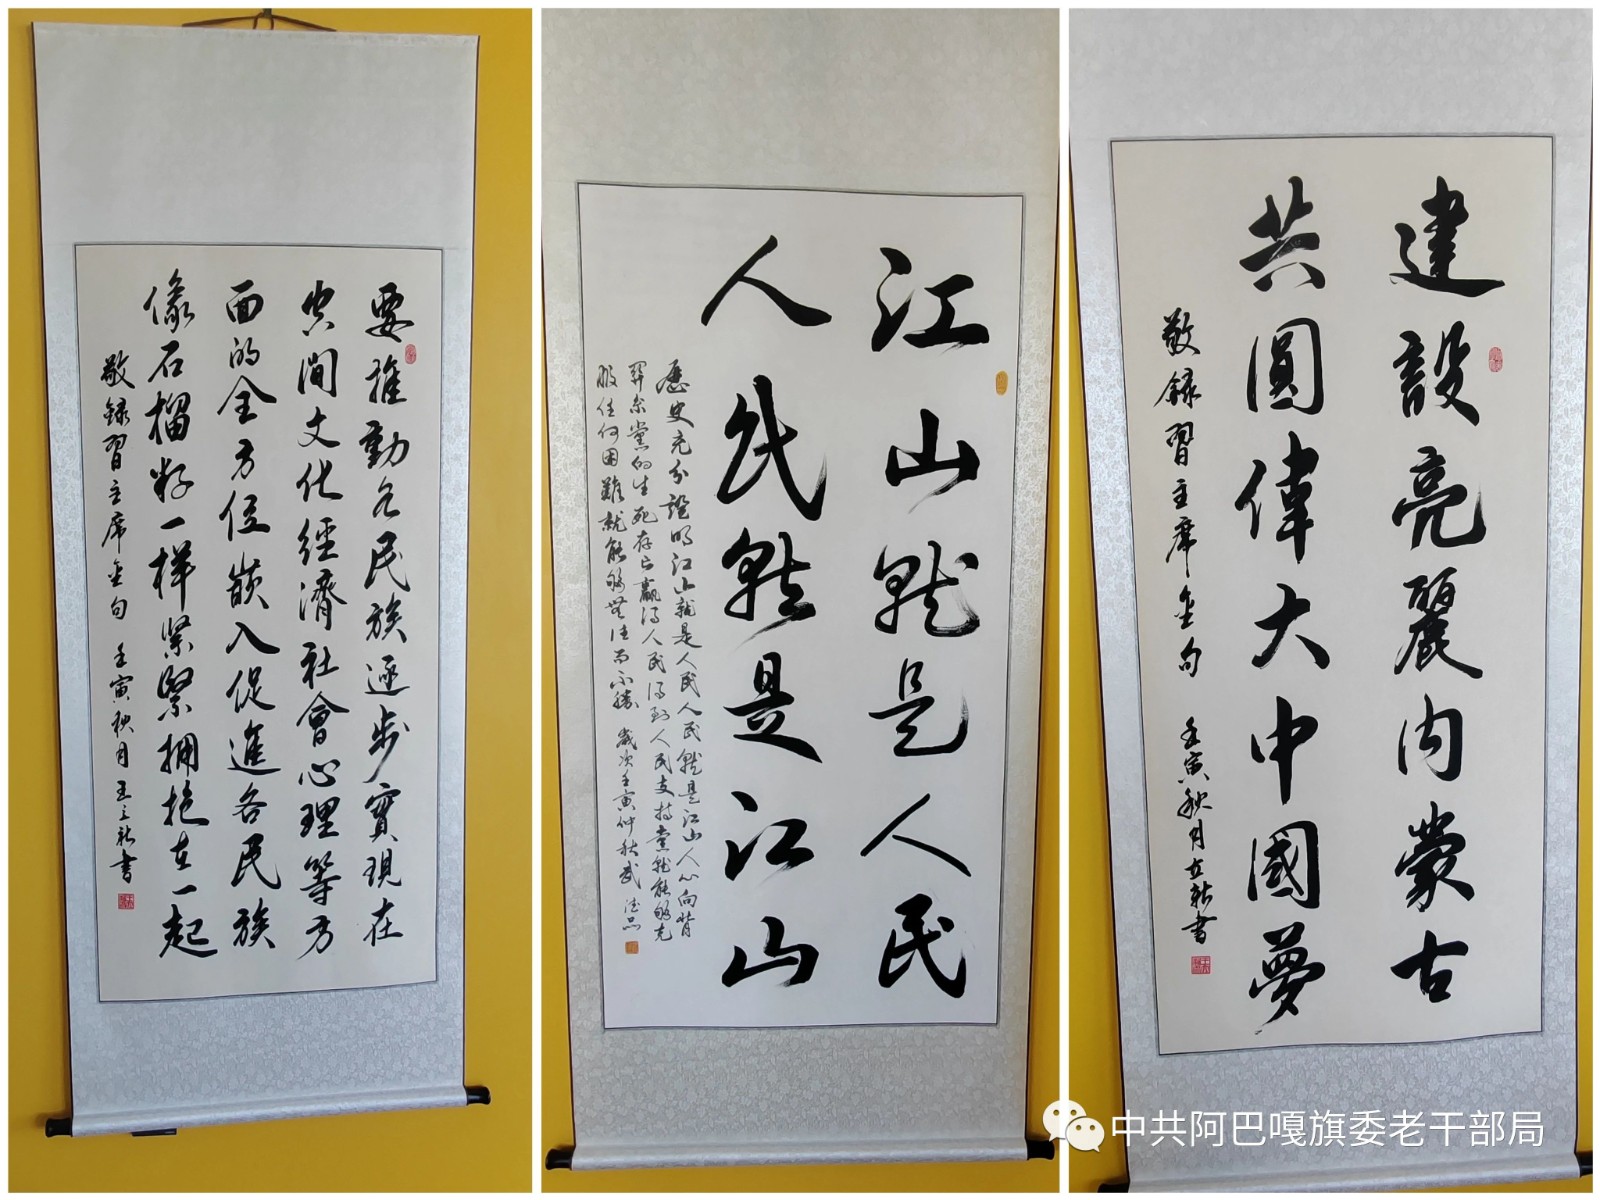 要推動各民族逐步實現在
空间文化經濟社會心理等方
面的全方位嵌入促進各民族
像石榴籽一样紧紧拥抱在一起
敬録習主席金句 壬寅秋月 王立新書
江山就是人民
人民就是江山
歷史充分證明江山就是人民人民就是江山人心向背
関系黨的生死存亡赢得人民信任得到人民支持黨就能够克
服任何困難就能够無往而不勝 歲次壬寅仲秋武
建設亮麗内蒙古
共圓偉大中國夢
敬録習主席金句 壬寅秋月立新書
中共阿巴嘎旗委老干部局